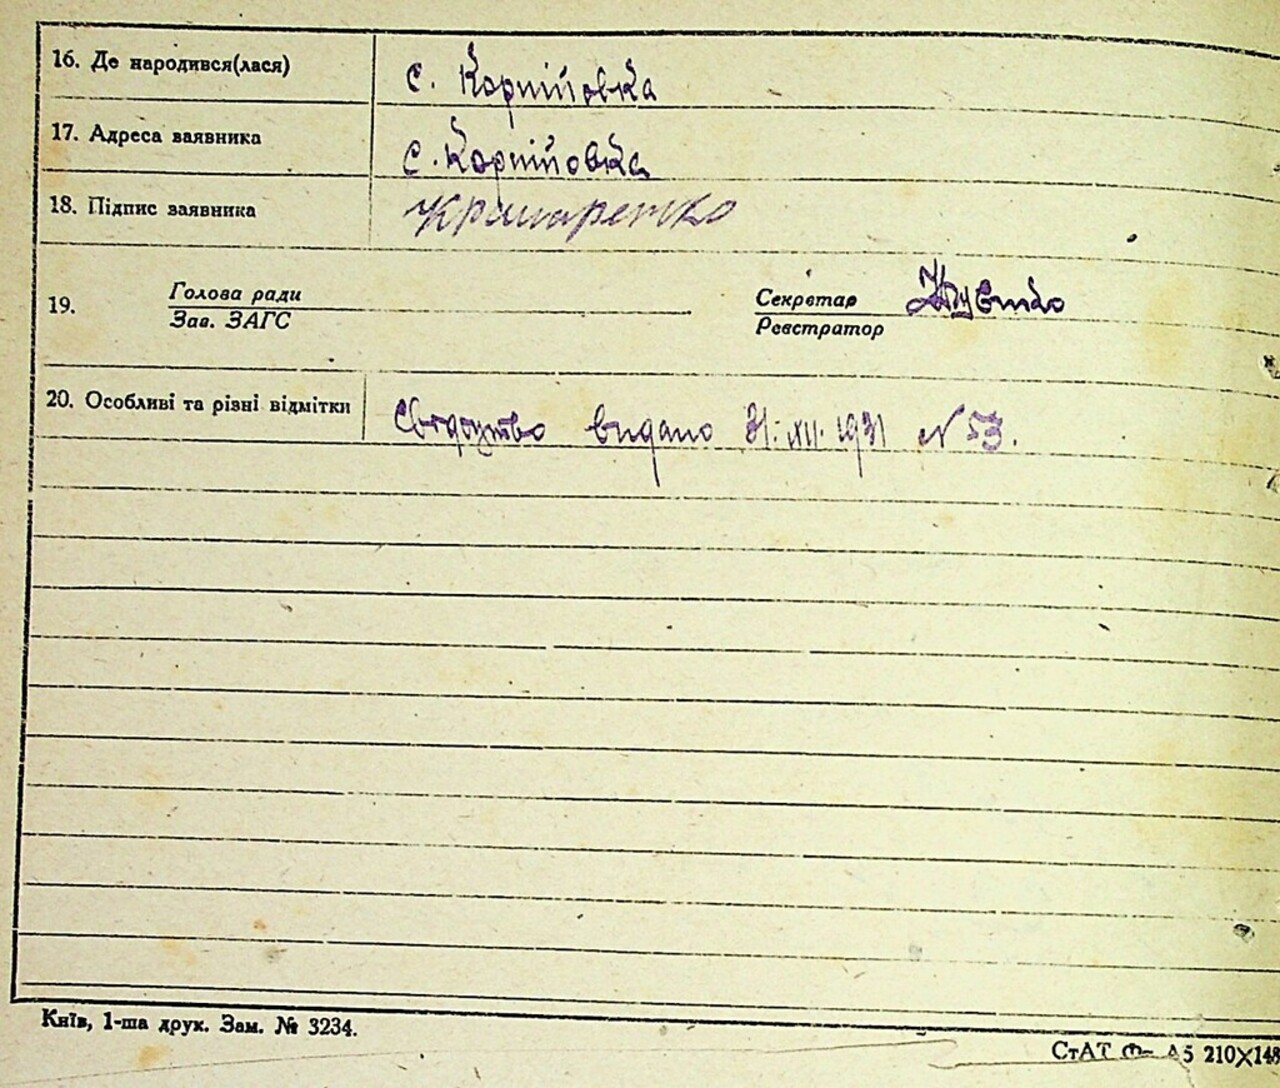 16. Де народився(лася) с. Корнійовка
17. Адреса заявника с. Корнійовка
18. Підпис заявника Крамаренко
19. Голова ради Секретар
Зав. ЗАГС Реєстратор
20. Особливі та різні відмітки Свідоцтво видано 31.XII.1931 N 53.
Київ, 1-ша друк. Зам. № 3234.
СтАТ Ф- А5 210X148